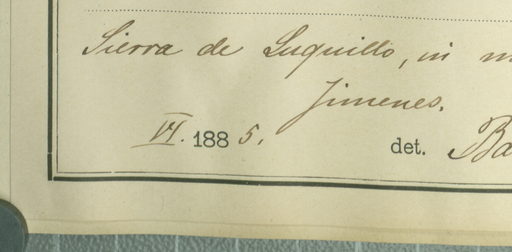 Sierra de Luquillo, in m
Jimenes.
VI. 1885. det. Ba